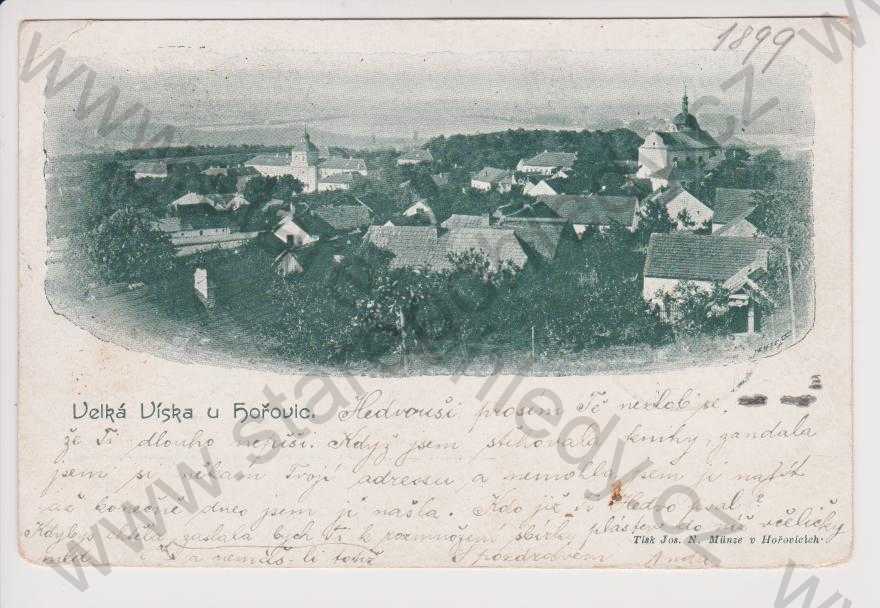 1899
Velká Víska u Hořovic.
Hedvouši prosím Tě nezlob se,
že Ti dlouho nepíši. Když jsem stěhovala knihy, zandala
jsem si někam Tvojí adressu a nemohla jsem ji najít
až konečně dnes jsem ji našla. Kdo již se Hedvo psal?
Kdybys chtěla, zaslala bych Ti k rozmnožení sbírky plástev do níž včeličky
med a nemáš-li totiž S pozdravem
Tisk Jos. N. Münze v Hořovicích.
www.starepohledy.cz